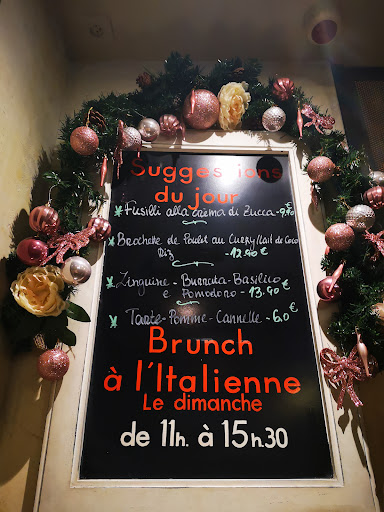 Suggestions
du jour
Fusilli alla crema di Zucca - 9.40€
Brochette de Poulet au Curry/Lait de Coco
Riz 12.40€
Linguine - Burrata - Basilico
e Pomodoro - 13.90€
Tarte - Pomme - Cannelle - 6.0€
Brunch
à l'Italienne
Le dimanche
de 11h. à 15h.30